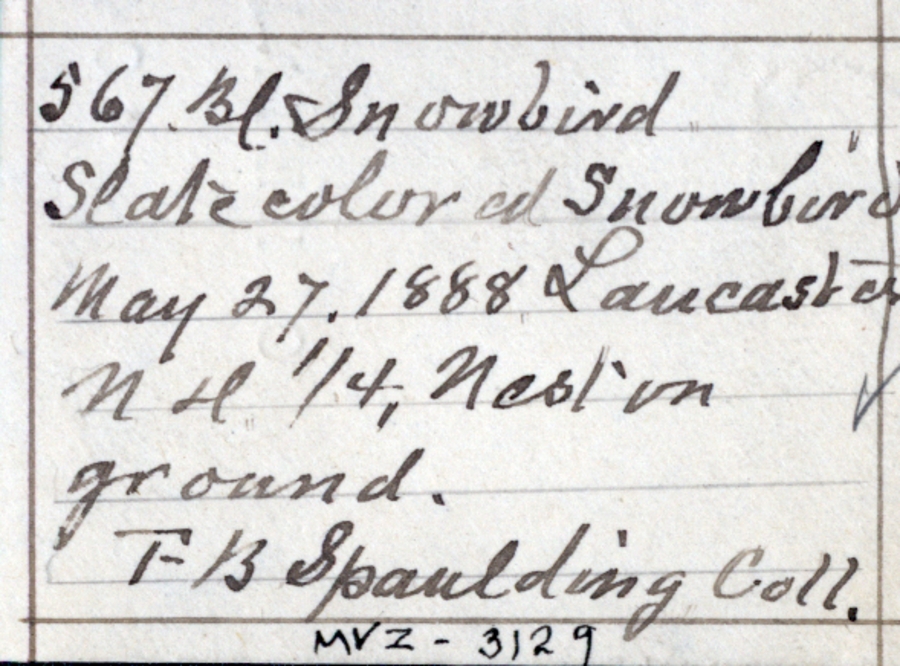 567. Bl. Snowbird
Slate colored Snowbird
May 27. 1888 Lancaster
N H 1/4, Nest on
ground.
F B Spaulding Coll.
MVZ - 3129